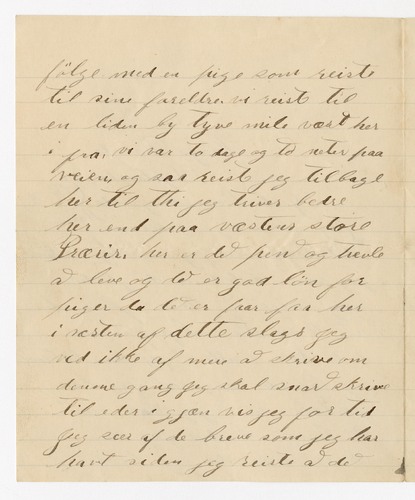 følge med en pige som reiste
til sine foreldre. vi reist til
en liden by tyve mile væst her
i fra, vi var to dage og to neter paa
veien, og saa reist jeg tilbage
her til thi jeg triver bedre
her end paa væstens store
Prærir. her er dé pent og
å leve og dé er god løn for
piger da dé er faar faa her
i væsten af dette slags jeg
ved ikke af mere å skrive om
denne gang jeg skal snard skrive
til eder igjæn vis jeg for tid
jeg sær af de breve som jeg har
havt siden jeg reiste å dé